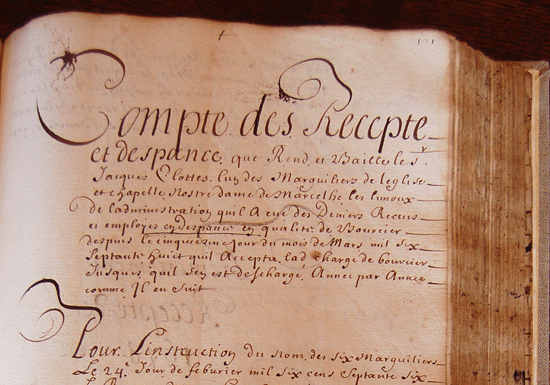 191
Compte des Recepte
et despance, que Rend et Baille le sr
Jacques Clottes, lun des Marguiliers de leglise
et chapelle nostre dame de Marcelhe les limoux
de ladministration quil A eue des Deniers Receus
et employes en despance en qualitte de Bourcier
despuis le cinquiesme Jour du mois de Mars mil six
septante huict quil Accepta lad charge de boursier
Jusques quil sen est deschargé Annee par Annee
comme Il en suit
Pour Linstruction du nom des six Marguiliers
Le 24e Jour de feburier mil six cens Septante six